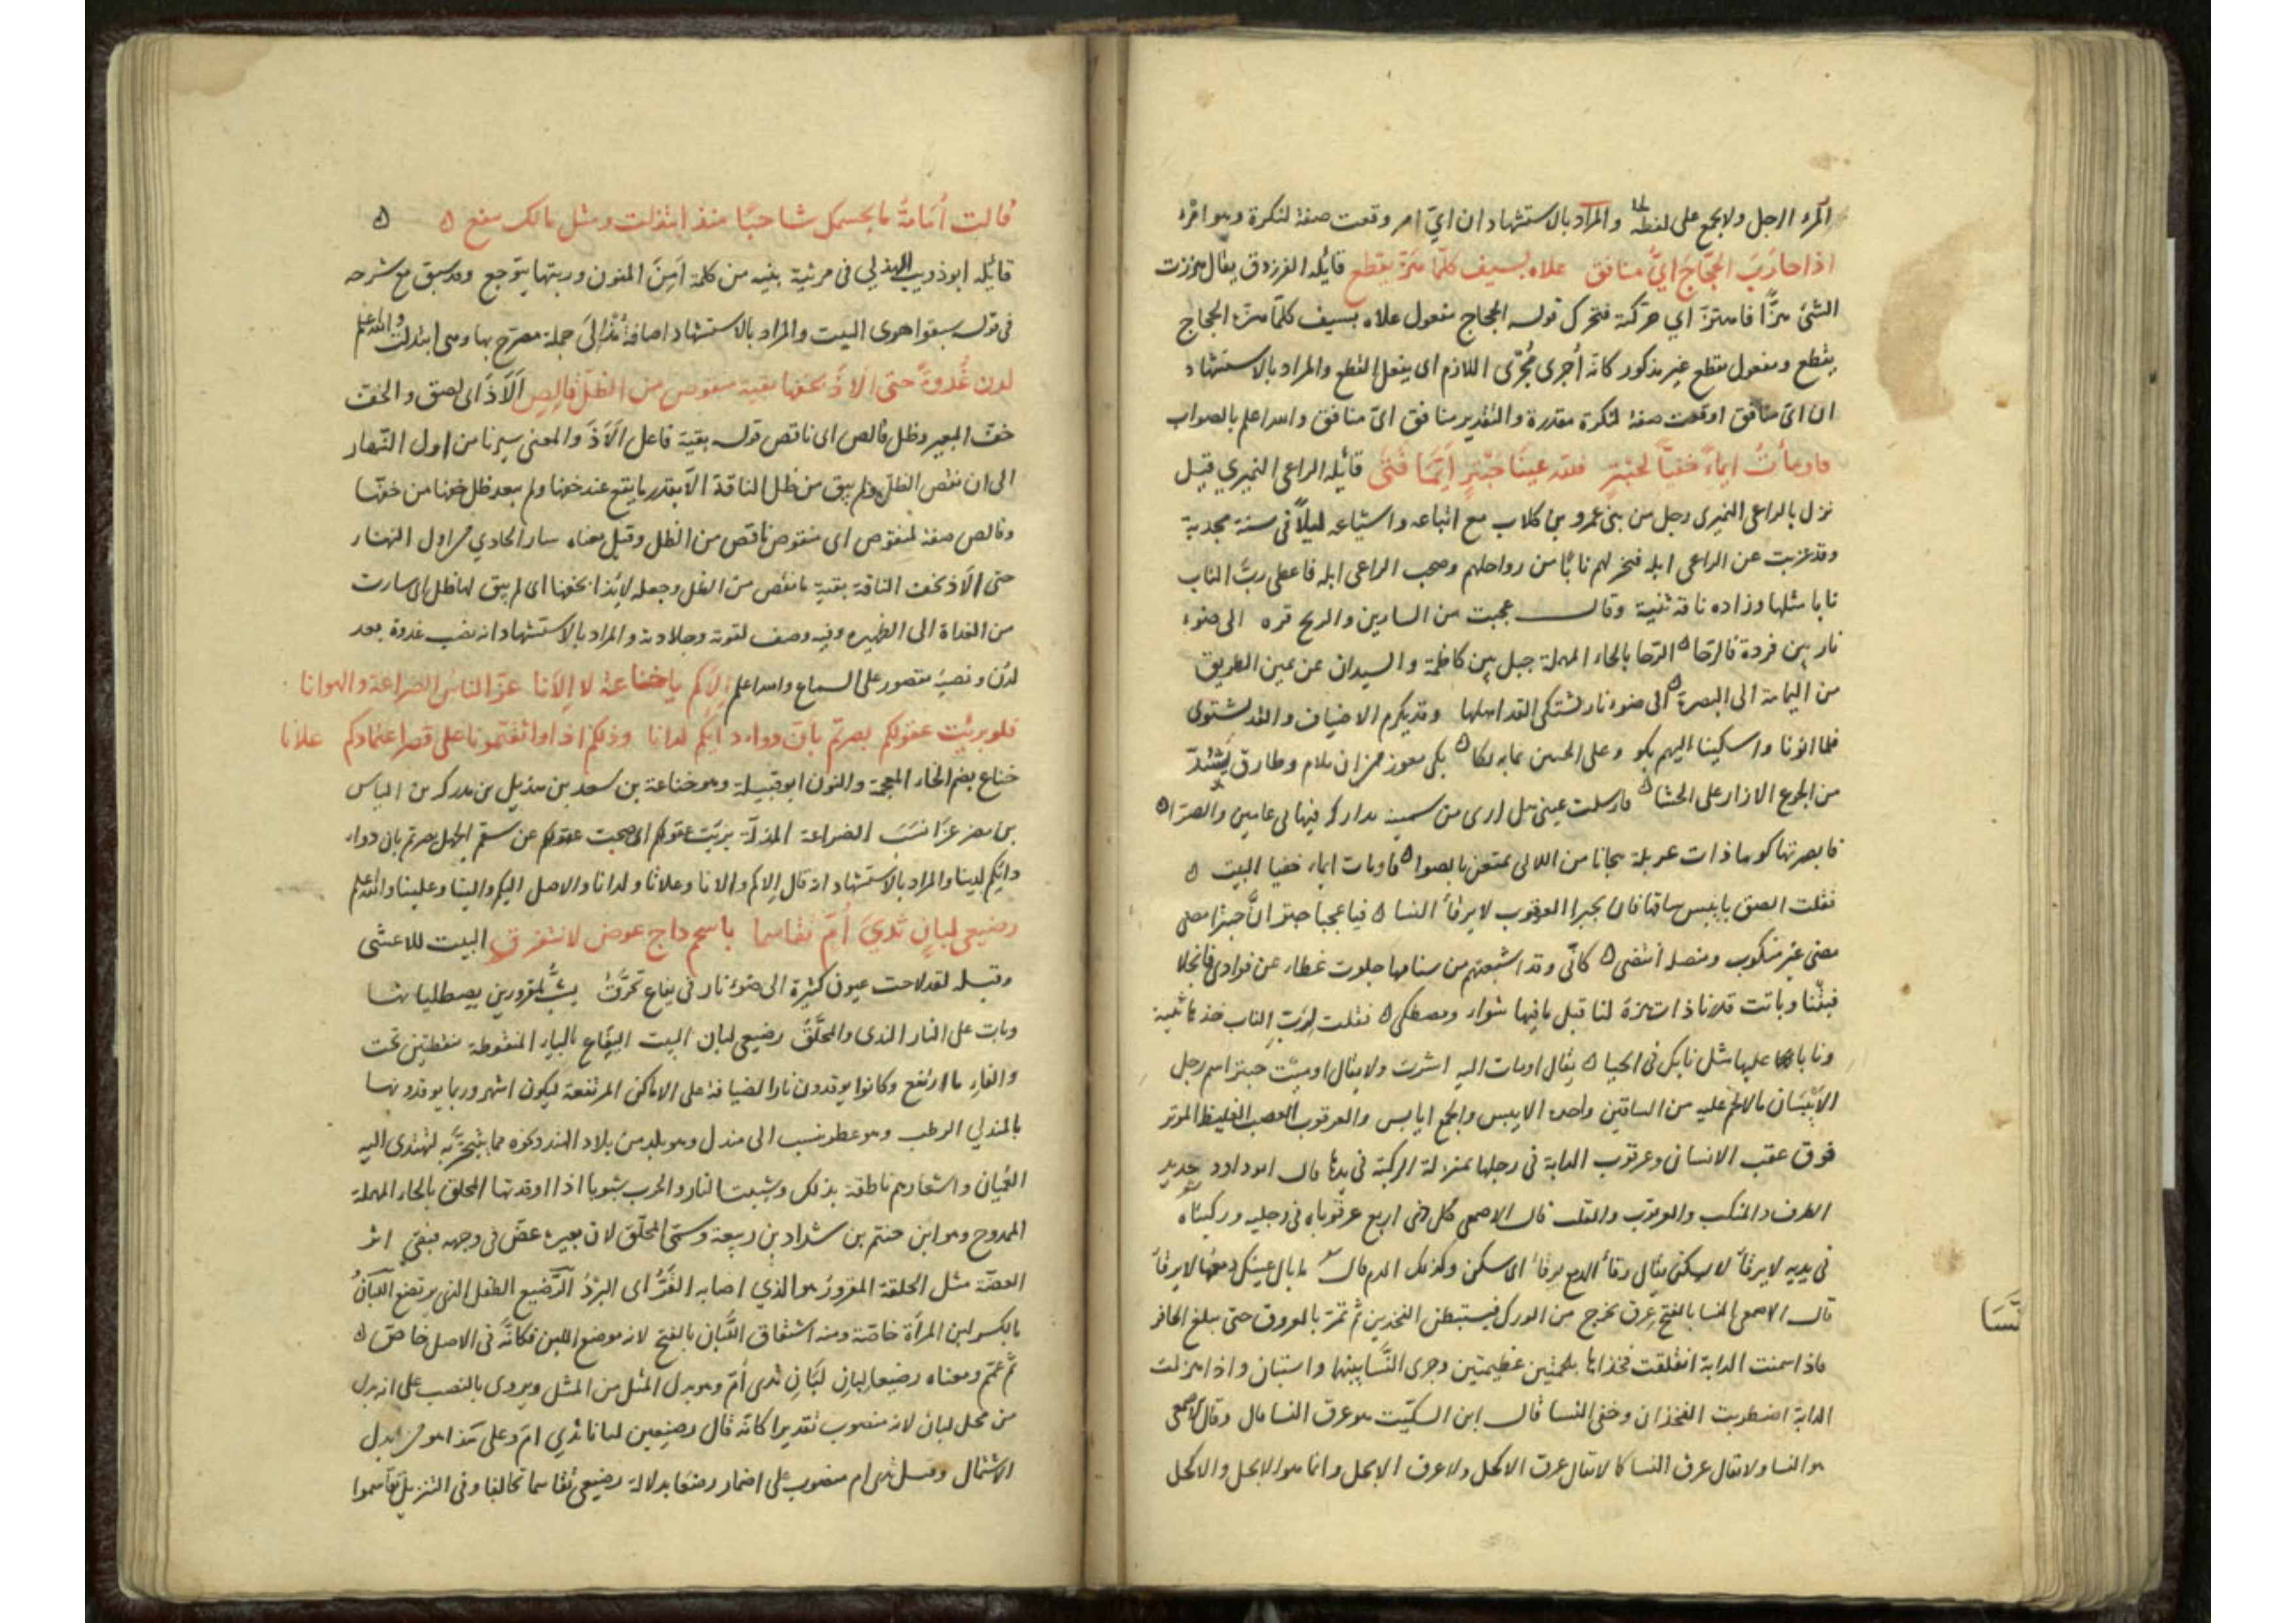 المرء الرجل ولا يجمع على لفظه والمراد بالاستشهاد ان ايّ امر وقعت صفة لنكرة وهو امرء
اذا حارَبَ الحجّاجُ ايَّ منافق علاه بسيف كلّما هزّ يقطع قائله الفرزدق يقال هززت
الشئ هزًّا فاهتزّ اي حركته فتحرك قوله الحجاج مفعول علاه بسيف كلّما هزّه الحجاج
يقطع ومفعول يقطع غير مذكور كانه أُجرى مُجرى اللازم اى يفعل القطع والمراد بالاستشهاد
ان اىّ منافق اوقعت صفة لنكرة مقدرة والتقدير منافق اىّ منافق والله اعلم بالصواب
فاومأتُ ايماءً خفيّاً لحبترٍ فلله عينا حبترٍ أيّما فتىً قائله الراعى النميري قيل
نزل بالراعى النميرى رجل من بنى عمرو بن كلاب مع اتباعه واشياعه ليلاً فى سنة مجدبة
وقد عزبت عن الراعى ابله فنحر لهم نابًا من رواحلهم وصحب الراعى ابله فاعطى ربّ الناب
نابا مثلها وزاده ناقة ثنية وقال عجبت من السارين والريح قره الى ضوء
نار بين فردة فالرحا ه الرّحا بالحاء المهملة جبل بين كاظمة والسيدان عن يمين الطريق
من اليمامة الى البصرة ه الى ضوء نار يشتكى القد اهلها وقد يكرم الاضياف والقد يشتوى
فلما اتونا واشتكينا اليهم بكو وعلى الحيين مما به لكا ه بكى معوز من ان يلام وطارق يَشُدّ
من الجوع الازار على الحشا ه فارسلت عينى هل ارى من سمينة
فابصرتها كوماذات عريكة هجانا من اللاتى تمتعن بالصوا ه فاومات ايماء خفيا البيت ه
فقلت الصق بايبس ساقها فان يجبر العرقوب لا يرقأ النسا ه فيا عجبا حبترا انّ حبترا مضى
مضى غير منكوب ومنصله انتضى ه كانّى وقد اشبعتهم من سنامها جلوت غطاء عن فوادى فانجلا
فبتنا وباتت قدرنا ذات هزة لنا قبل ما فيها شواء ومصطلى ه فقلت لربّ الناب خذها ثنية
ونابا عليها مثل نابك فى الحيا ه يقال اومات اليه اشرت ولا يقال اوميت حبتر اسم رجل
الايبسان مالا لحم عليه من الساقين واحده الايبس والجمع ايابس والعرقوب العصب الغليظ الموتر
فوق عقب الانسان وعرقوب الدابة فى رجلها بمنزلة الركبة فى يدها قال ابو داود حديد
الطرف والمنكب والعرقوب والقلب قال الاصمعى كل ذى اربع عرقوباه فى رجليه وركبتاه
فى يديه لا يرقأ لا يسكن يقال رقأ الدمع يرقأ اى سكن وكذلك الدم قال ما بال عينك دمعها لا يرقأ
قال الاصمعى النسا بالفتح عِرق يخرج من الورك فيستبطن الفخذين ثم تمرّ بالعروقوب حتى يبلغ الحافر
فاذا سمنت الدابة انفلقت فخذاها بلحمتين عظيمتين وجرى النَّسا بينهما واستبان واذا هزلت
الدابة اضطربت الفخذان وخفى النسا قال ابن السكّيت هو عرق النسا قال وقال الاصمعى
هو النسا ولا يقال عرق النسا كما لا يقال عرق الاكحل ولا عرق الابجل وانما هو الابجل والاكحل
نَّسَا
قالت أُمامةُ ما لجسمك شاحبًا منذ ابتذلت ومثل مالك ينفع ه ه
قائله ابو ذويب الهذلي فى مرثية بنيه من كلمة اَمِنَ المنون وريبها يتوجع وقد سبق مع شرحه
فى قوله سبقوا هوى البيت والمراد بالاستشهاد اضافة مُنْذُ الى جملة مصرّح بها وهى ابتذلت والله اعلم
لدن غُدوةً حتى ألاذَ بخفها بقية منقوص من الظلّ قالِصِ اَلاذَ اى لصق والخف
خف البعير وظل قالص اى ناقص قوله بقية فاعل اَلاَذَ والمعنى سيرنا من اول النّهار
الى ان نقص الظل ولم يبق من ظل الناقة الاّ بقدر ما يقع عند خفها ولم يبعد ظل خفها من خفّها
وقالص صفة لمنقوص اى منقوص ناقص من الظل وقيل معناه سار الحادي من اول النهار
حتى الاذ بخف الناقة بقية ما نقص من الظل وجعله لائذا بخفها اى لم يبق لها ظل اى سارت
من الغداة الى الظهيره وفيه وصف لقوته وجلادته والمراد بالاستشهاد انه نصب غدوة بعد
لدن ونصبُهُ مقصور على السماع والله اعلم اِلاكم يا خناعة لا اِلانا عزا الناسُ الضراعة والهوانا
فلو برئت عقولكم بصرتم بان دواء دائكم لدانا وذلكم اذا واثقتمونا على قصر اعتمادكم علانا
خناعة بضم الخاء المعجمة والنون ابو قبيلة وهو خناعة بن سعد بن هذيل بن مدركة بن الياس
بن مضر عَزَا نسَبَ الضراعة المذلّة برئت عقولكم اى صحت عقولكم عن سقم الجهل بصرتم بان دواء
دائكم لدينا والمراد بالاستشهاد انه قال اِلاكم واِلانا وعلانا ولدانا والاصل اليكم والينا وعلينا والله اعلم
رضيعى لبانٍ ثديَ أُمّ تقاسما باسحم داج عوض لا نتفرق البيت للاعشى
وقبله لقد لاحت عيون كثيرة الى ضوء نار فى يفاع تحرّقُ يُشبُّ لمقرورين يصطليانها
وبات على النار الندى والمحلّقُ رضيعى لبان البيت اليفاع بالياء المنقوطة بنقطتين تحت
والفاءِ ما ارتفع وكانوا يوقدون نارا لضيافة على الاماكن المرتفعة ليكون اشهر وربما يوقدونها
بالمندلي الرطب وهو عطر ينسب الى مندل وهو بلد من بلاد الهند ونحوه مما يتبخّر به ليهتدى اليه
العُميان واشعارهم ناطقة بذلك وشببت النار والحرب شبوبا اذا اوقدتها المحلق بالحاء المهملة
الممدوح وهو ابن حنتم بن شداد بن ربيعة وسمّى المحلّق لان بعيره عضّ فى وجهه فبقى اثر
العضّة مثل الحلقة المقرور هو الذي اصابه القَرُّ اى البردُ الرّضيع الطفل الذى يرتضع اللّبانُ
بالكسر لبن المرأة خاصّة ومنه اشتقاق اللَّبان بالفتح لانه موضع اللبن فكانّه فى الاصل خاصّ ه
ثم عمّ ومعناه رضيعا لبانٍ لبَانِ ثدى أُمّ وهو بدل المثل من المثل ويروى بالنصب على انه بدل
من محل لبان لانه منصوب تقديرا كانّه قال رضيعين لبانا ثدي امّ وعلى هذا هو من بدل
الاشتمال وقيل ثدى ام منصوب على اضمار رضعا بدلالة رضيعى تقاسما تحالفا وفى التنزيل تقاسموا